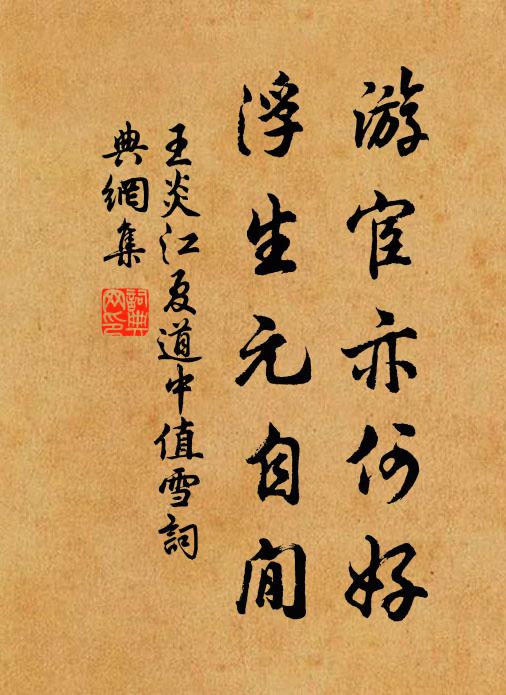 游宦亦何好
浮生元自閒
王炎江夏道中值雪詞
典網集
詞典網印